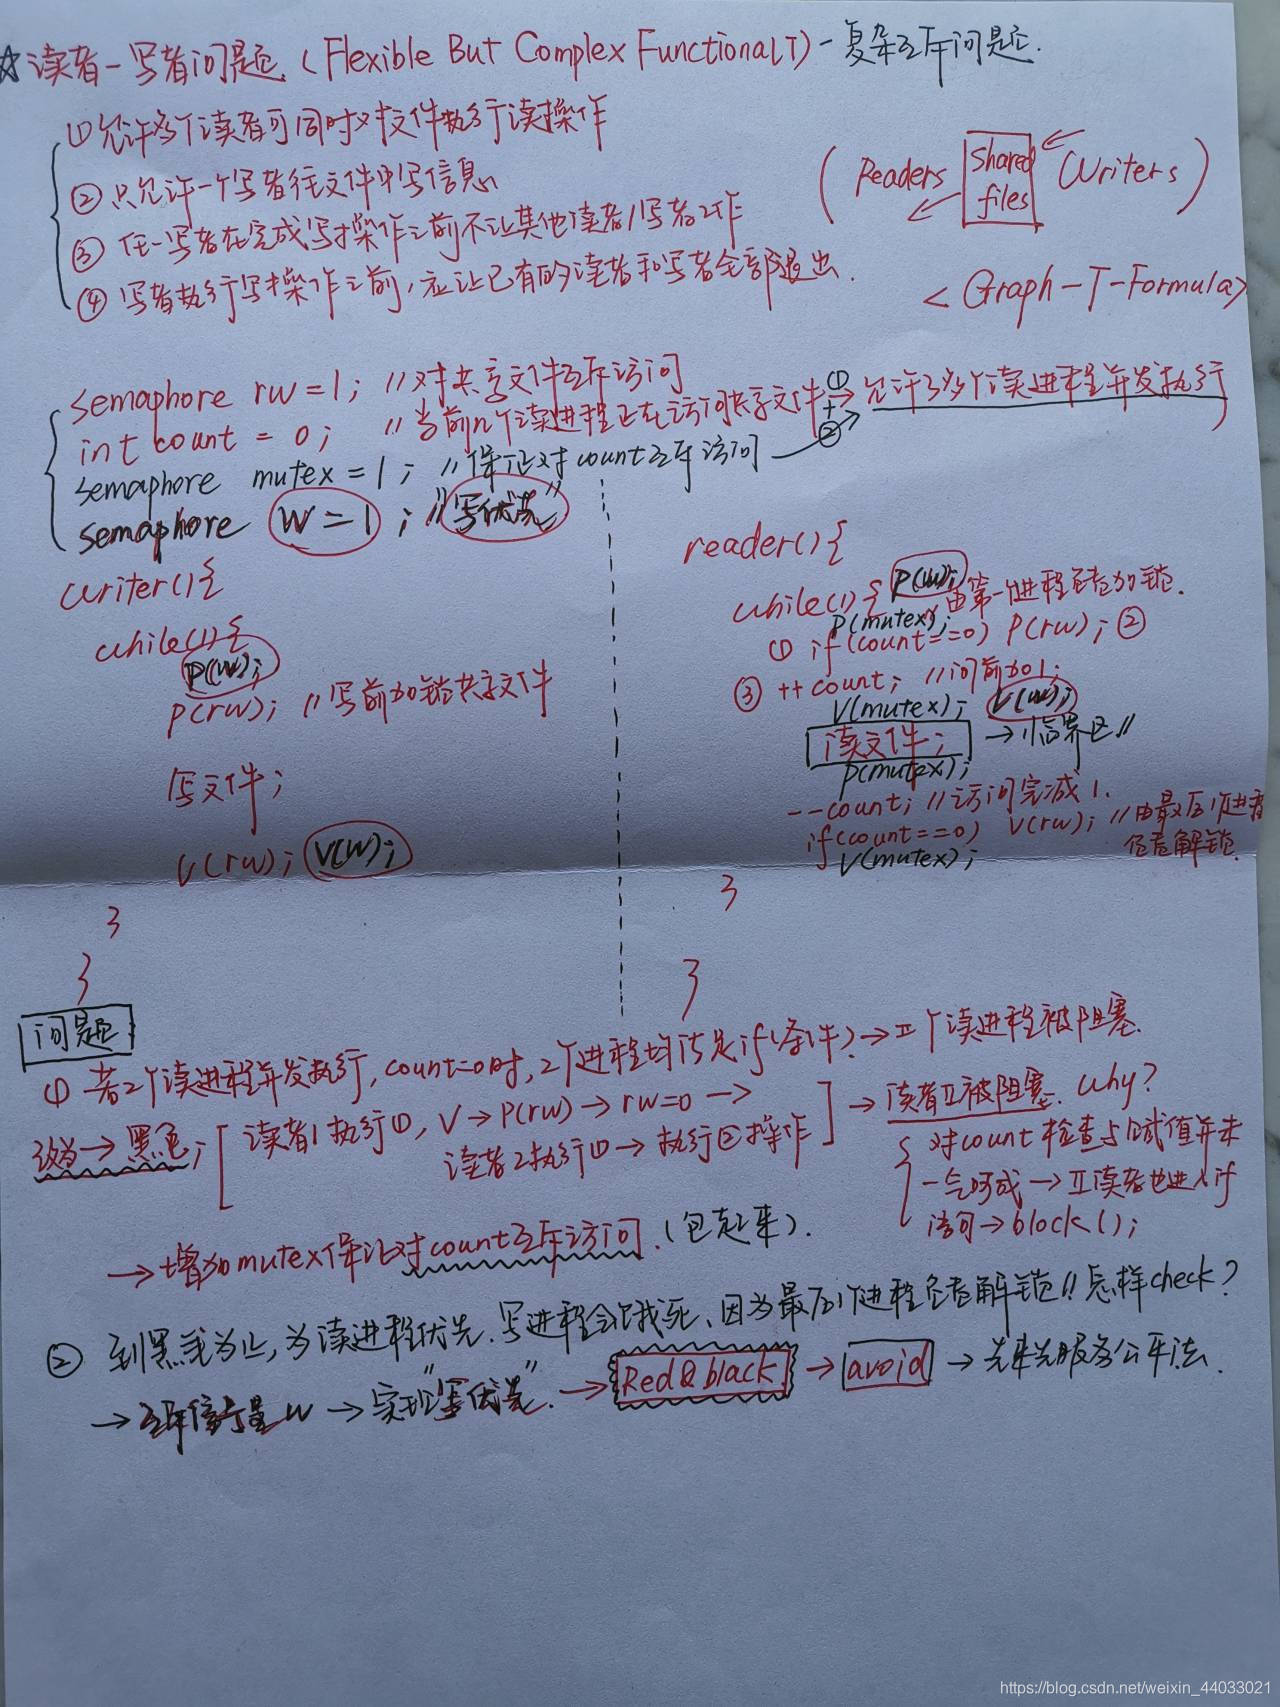 ☆读者-写者问题 (Flexible But Complex Functional T) - 复杂互斥问题.
① 允许多个读者可同时对文件执行读操作
② 只允许一个写者往文件中写信息
③ 任一写者在完成写操作之前不让其他读者/写者工作
④ 写者执行写操作之前,应让已有的读者和写者全部退出.
(Readers Shared files Writers)
<Graph-T-Formula>
semaphore rw=1; //对共享文件互斥访问
int count = 0; //当前n个读进程正在访问共享文件 ①+② → 允许多个读进程并发执行
semaphore mutex=1; //保证对count互斥访问
semaphore w=1; //"写优先"
writer(){
while(1){
P(w);
P(rw); //写前加锁共享文件
写文件;
V(rw); V(w);
}
}
reader(){
while(1){ P(w); 由第一个进程负责加锁.
P(mutex);
① if(count==0) P(rw); ②
③ ++count; //访前加1;
V(mutex); V(w);
读文件; → 临界区//
P(mutex);
--count; //访问完减1.
if(count==0) V(rw); //由最后1个进程
负责解锁.
V(mutex);
}
}
问题
① 若2个读进程并发执行, count=0时, 2个进程均满足if条件. → II个读进程被阻塞.
改为→黑色; [读者1执行①, V→P(rw)→rw=0→
读者2执行①→执行②操作] → 读者II被阻塞. Why?
对count检查与赋值并未
一气呵成→II读者也进入if
语句→block();
→增加mutex保证对count互斥访问.(包起来).
② 到黑线为止,为读进程优先.写进程会饿死、因为最后1个进程负责解锁!!怎样check?
→互斥信号量w→实现"写优先".→Red&black→avoid→先来先服务公平法.
https://blog.csdn.net/weixin_44033021